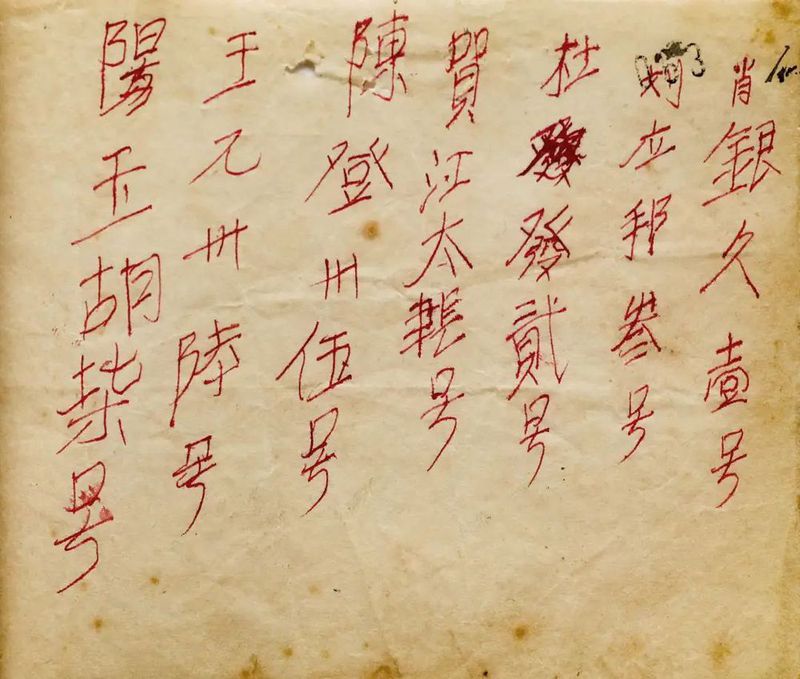 肖銀久壹号
立邦叁号
杜發發貳号
賀江太號号
陳登卅伍号
王元卅陸号
陽玉胡柒号